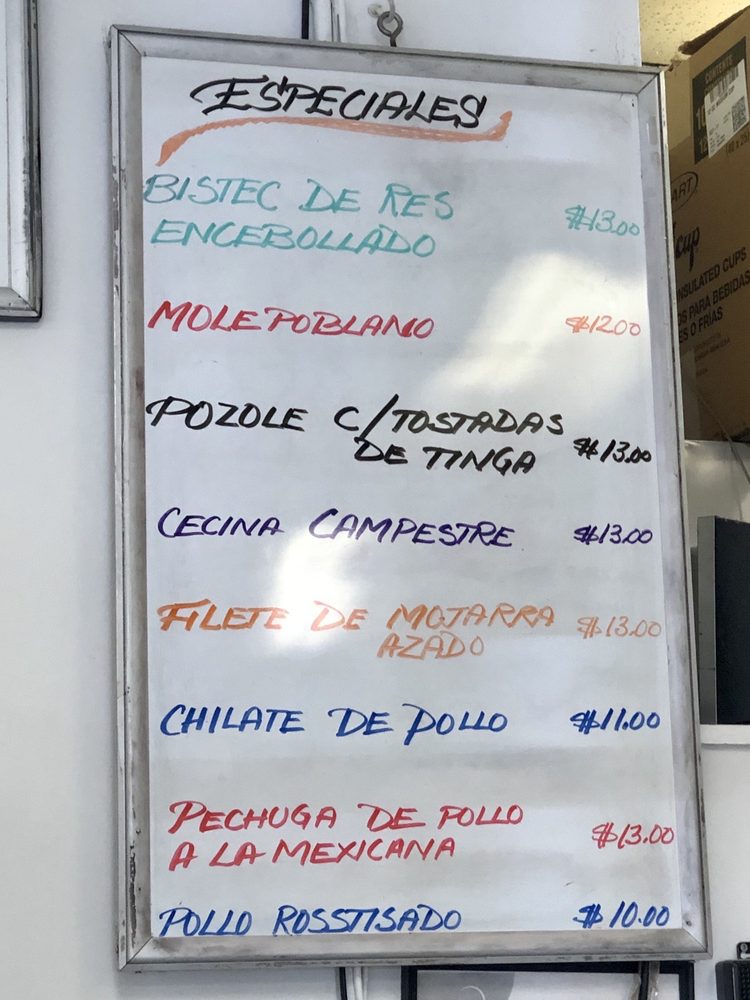 ESPECIALES
BISTEC DE RES
ENCEBOLLADO $13.00
MOLE POBLANO $12.00
POZOLE C/TOSTADAS
DE TINGA $13.00
CECINA CAMPESTRE $13.00
FILETE DE MOJARRA $13.00
AZADO
CHILATE DE POLLO $11.00
PECHUGA DE POLLO
A LA MEXICANA $13.00
POLLO ROSSTISADO $10.00
CONTENTS
ART
cup
INSULATED CUPS
PARA BEBIDAS
O FRIAS